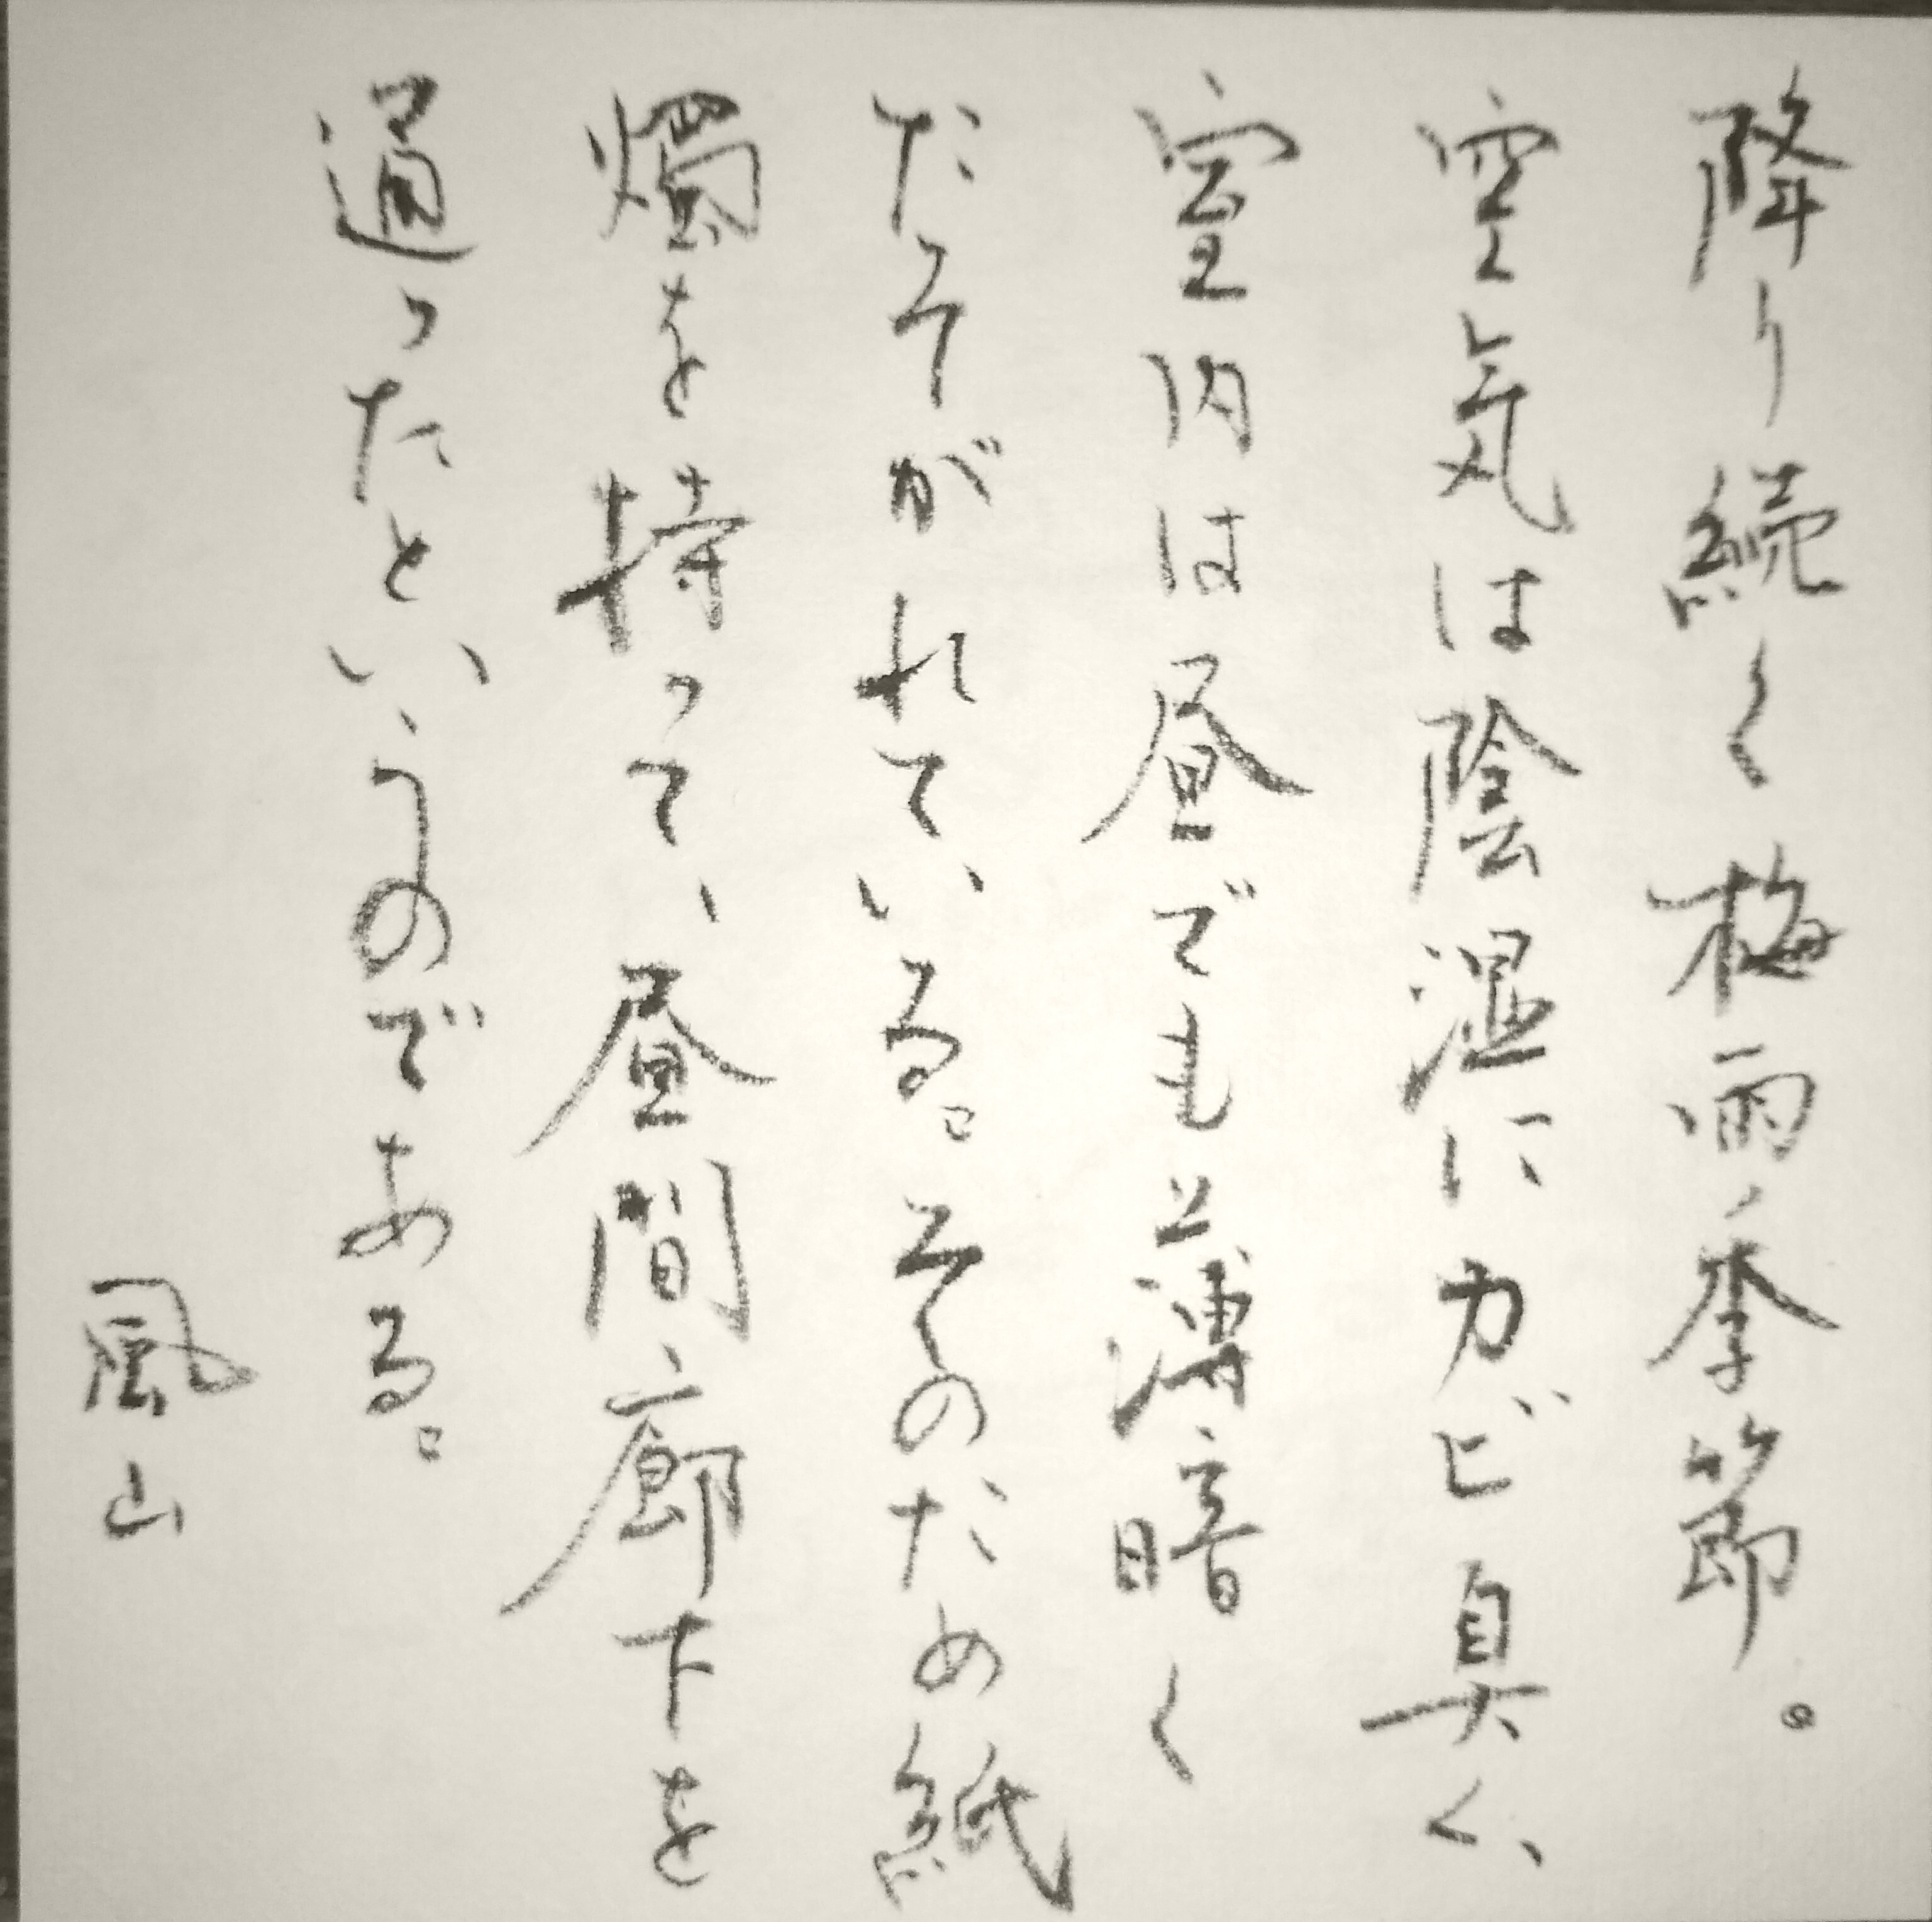 降り続く梅雨季節。
空気は陰湿にカビ臭く、
室内は昼でも薄暗く
たそがれている。そのため紙
燭を持って、昼間廊下を
通ったというのである。
風山